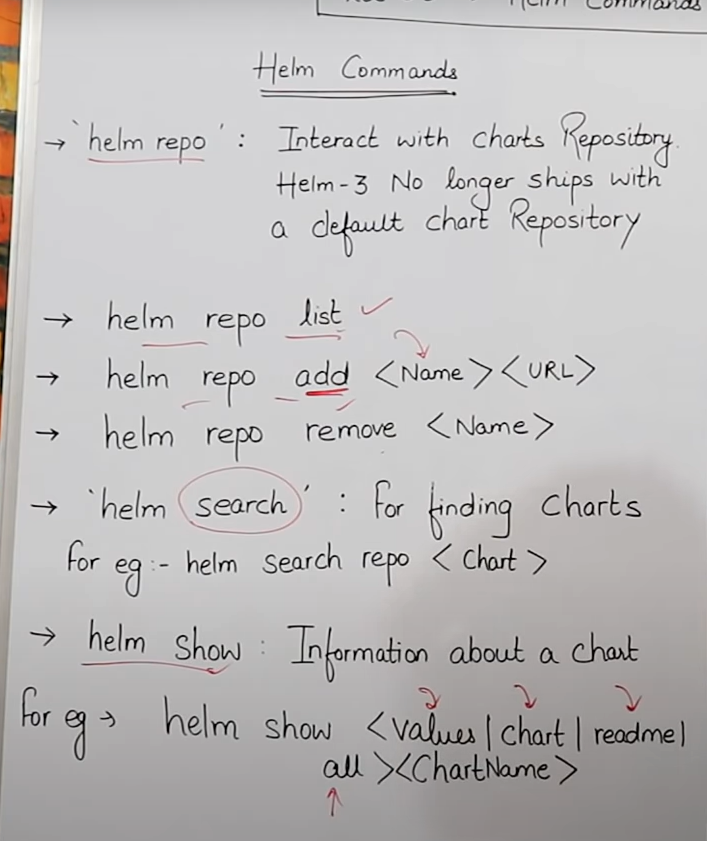 Helm Commands
Helm Commands
→ 'helm repo' : Interact with charts Repository.
Helm-3 No longer ships with
a default chart Repository
→ helm repo list ✓
→ helm repo add <Name> <URL>
→ helm repo remove <Name>
→ 'helm search' : For finding Charts
For eg :- helm search repo < Chart >
→ helm show : Information about a chart
For eg → helm show <values | chart | readme |
all ><ChartName>